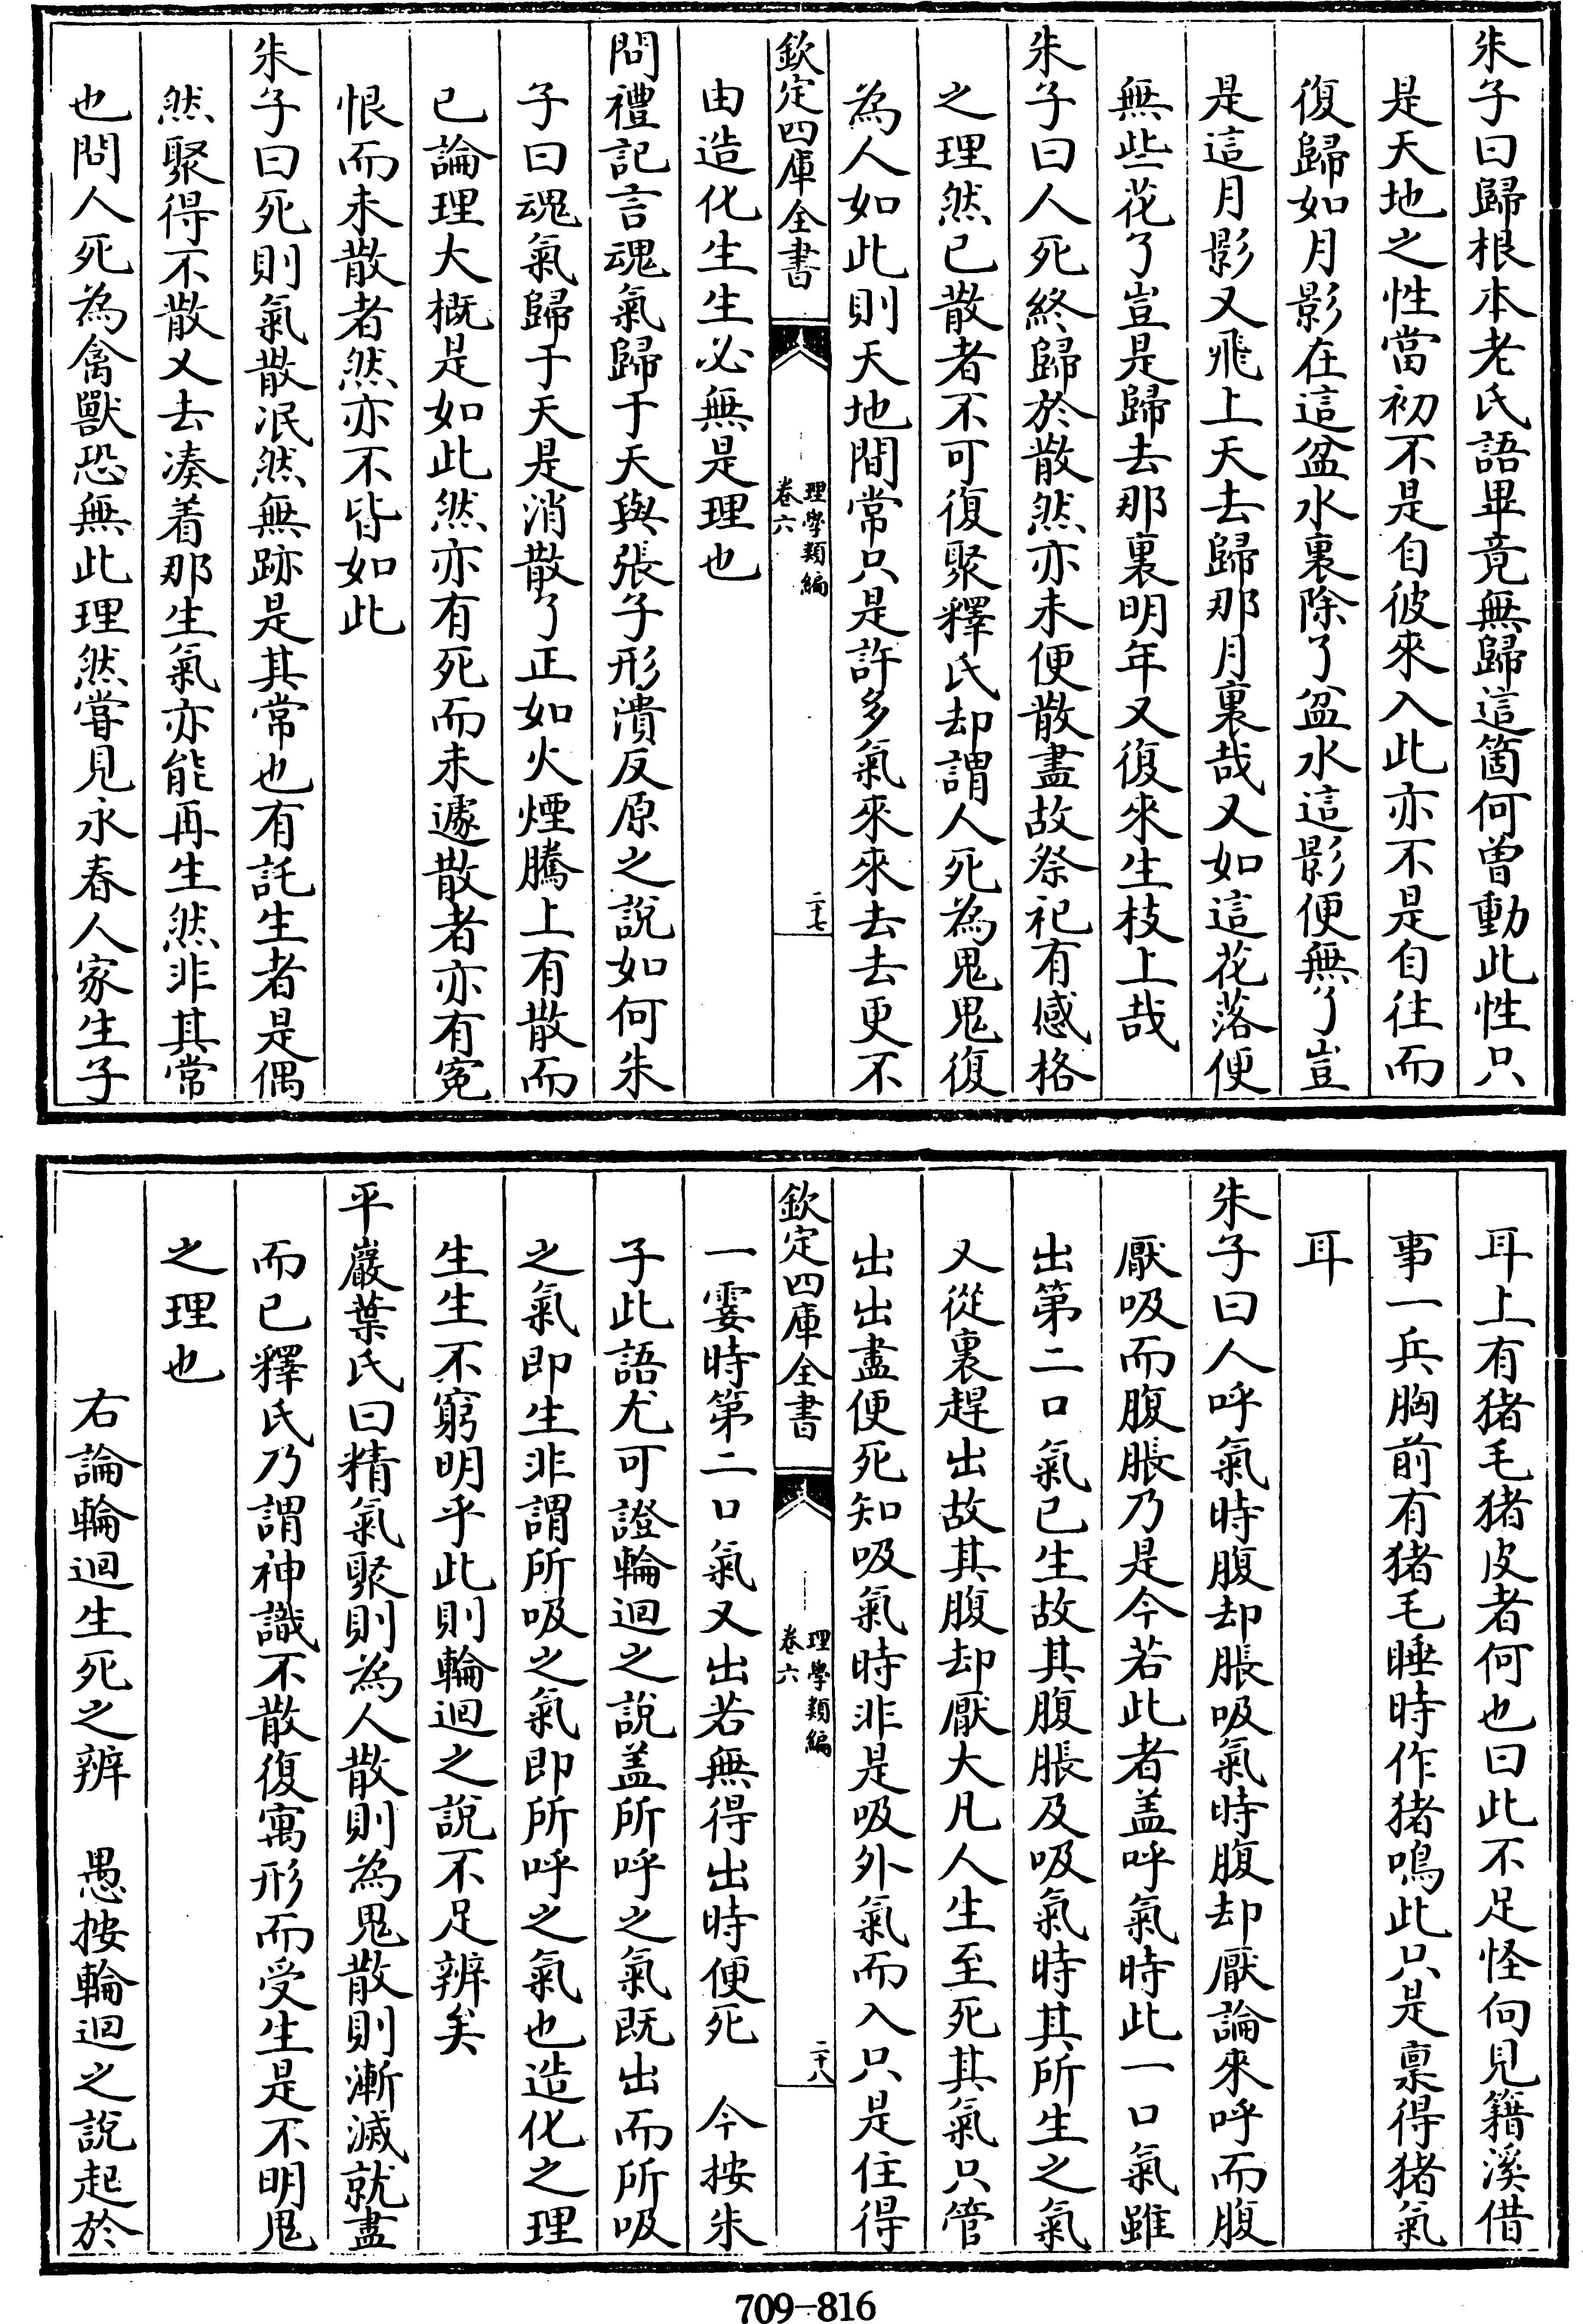 朱子曰歸根本老氏語畢竟無歸這箇何曾動此性只
是天地之性當初不是自彼來入此亦不是自往而
復歸如月影在這盆水裏除了盆水這影便無了豈
是這月影又飛上天去歸那月裏哉又如這花落便
無些花了豈是歸去那裏明年又復來生枝上哉
朱子曰人死終歸於散然亦未便散盡故祭祀有感格
之理然已散者不可復聚釋氏却謂人死為鬼鬼復
為人如此則天地間常只是許多氣來來去去更不
欽定四庫全書
理學類編
卷六
二十七
由造化生生必無是理也
問禮記言魂氣歸于天與張子形潰反原之說如何朱
子曰魂氣歸于天是消散了正如火煙騰上有散而
已論理大概是如此然亦有死而未遽散者亦有寃
恨而未散者然亦不皆如此
朱子曰死則氣散泯然無跡是其常也有託生者是偶
然聚得不散又去凑着那生氣亦能再生然非其常
也問人死為禽獸恐無此理然嘗見永春人家生子
耳上有猪毛猪皮者何也曰此不足怪向見籍溪借
事一兵胸前有猪毛睡時作猪鳴此只是稟得猪氣
耳
朱子曰人呼氣時腹却脹吸氣時腹却厭論來呼而腹
厭吸而腹脹乃是今若此者盖呼氣時此一口氣雖
出第二口氣已生故其腹脹及吸氣時其所生之氣
又從裏趕出故其腹却厭大凡人生至死其氣只管
出出盡便死知吸氣時非是吸外氣而入只是住得
欽定四庫全書
理學類編
卷六
二十八
一霎時第二口氣又出若無得出時便死 今按朱
子此語尤可證輪迴之說盖所呼之氣既出而所吸
之氣即生非謂所吸之氣即所呼之氣也造化之理
生生不窮明乎此則輪迴之說不足辨矣
平巖葉氏曰精氣聚則為人散則為鬼散則漸滅就盡
而已釋氏乃謂神識不散復寓形而受生是不明鬼
之理也
右論輪迴生死之辨 愚按輪迴之說起於
709-816